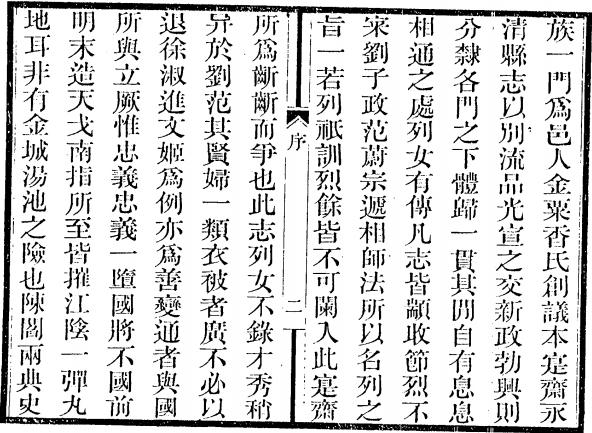 族一門爲邑人金粟香氏創議本寔齋永
清縣志以別流品光宣之交新政勃興則
分隸各門之下體歸一貫其閒自有息息
相通之處列女有傳凡志皆顓收節烈不
宋劉子政范蔚宗遞相師法所以名列之
旨一若列祇訓烈餘皆不可闌入此寔齋
序
二
所爲齗齗而爭也此志列女不錄才秀稍
异於劉范其賢婦一類衣被者廣不必以
退徐淑進文姬爲例亦爲善變通者與國
所與立厥惟忠義忠義一墮國將不國前
明末造天戈南指所至皆摧江陰一彈丸
地耳非有金城湯池之險也陳閻兩典史